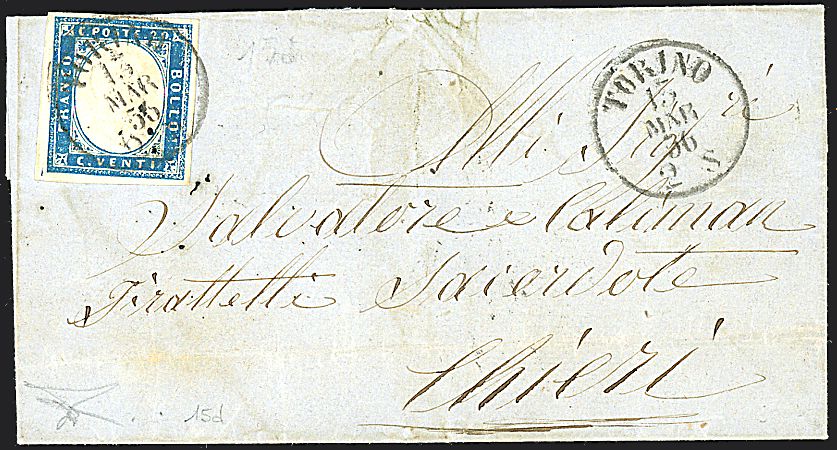 C. POSTE. 20
FRANCO
BOLLO
C. VENTI
TORINO
15
MAR
56
TORINO
15
MAR
56
2 S
Alli Sig.ri
Salvatore e Caliman
Frattelli Sacerdote
Chieri
15d